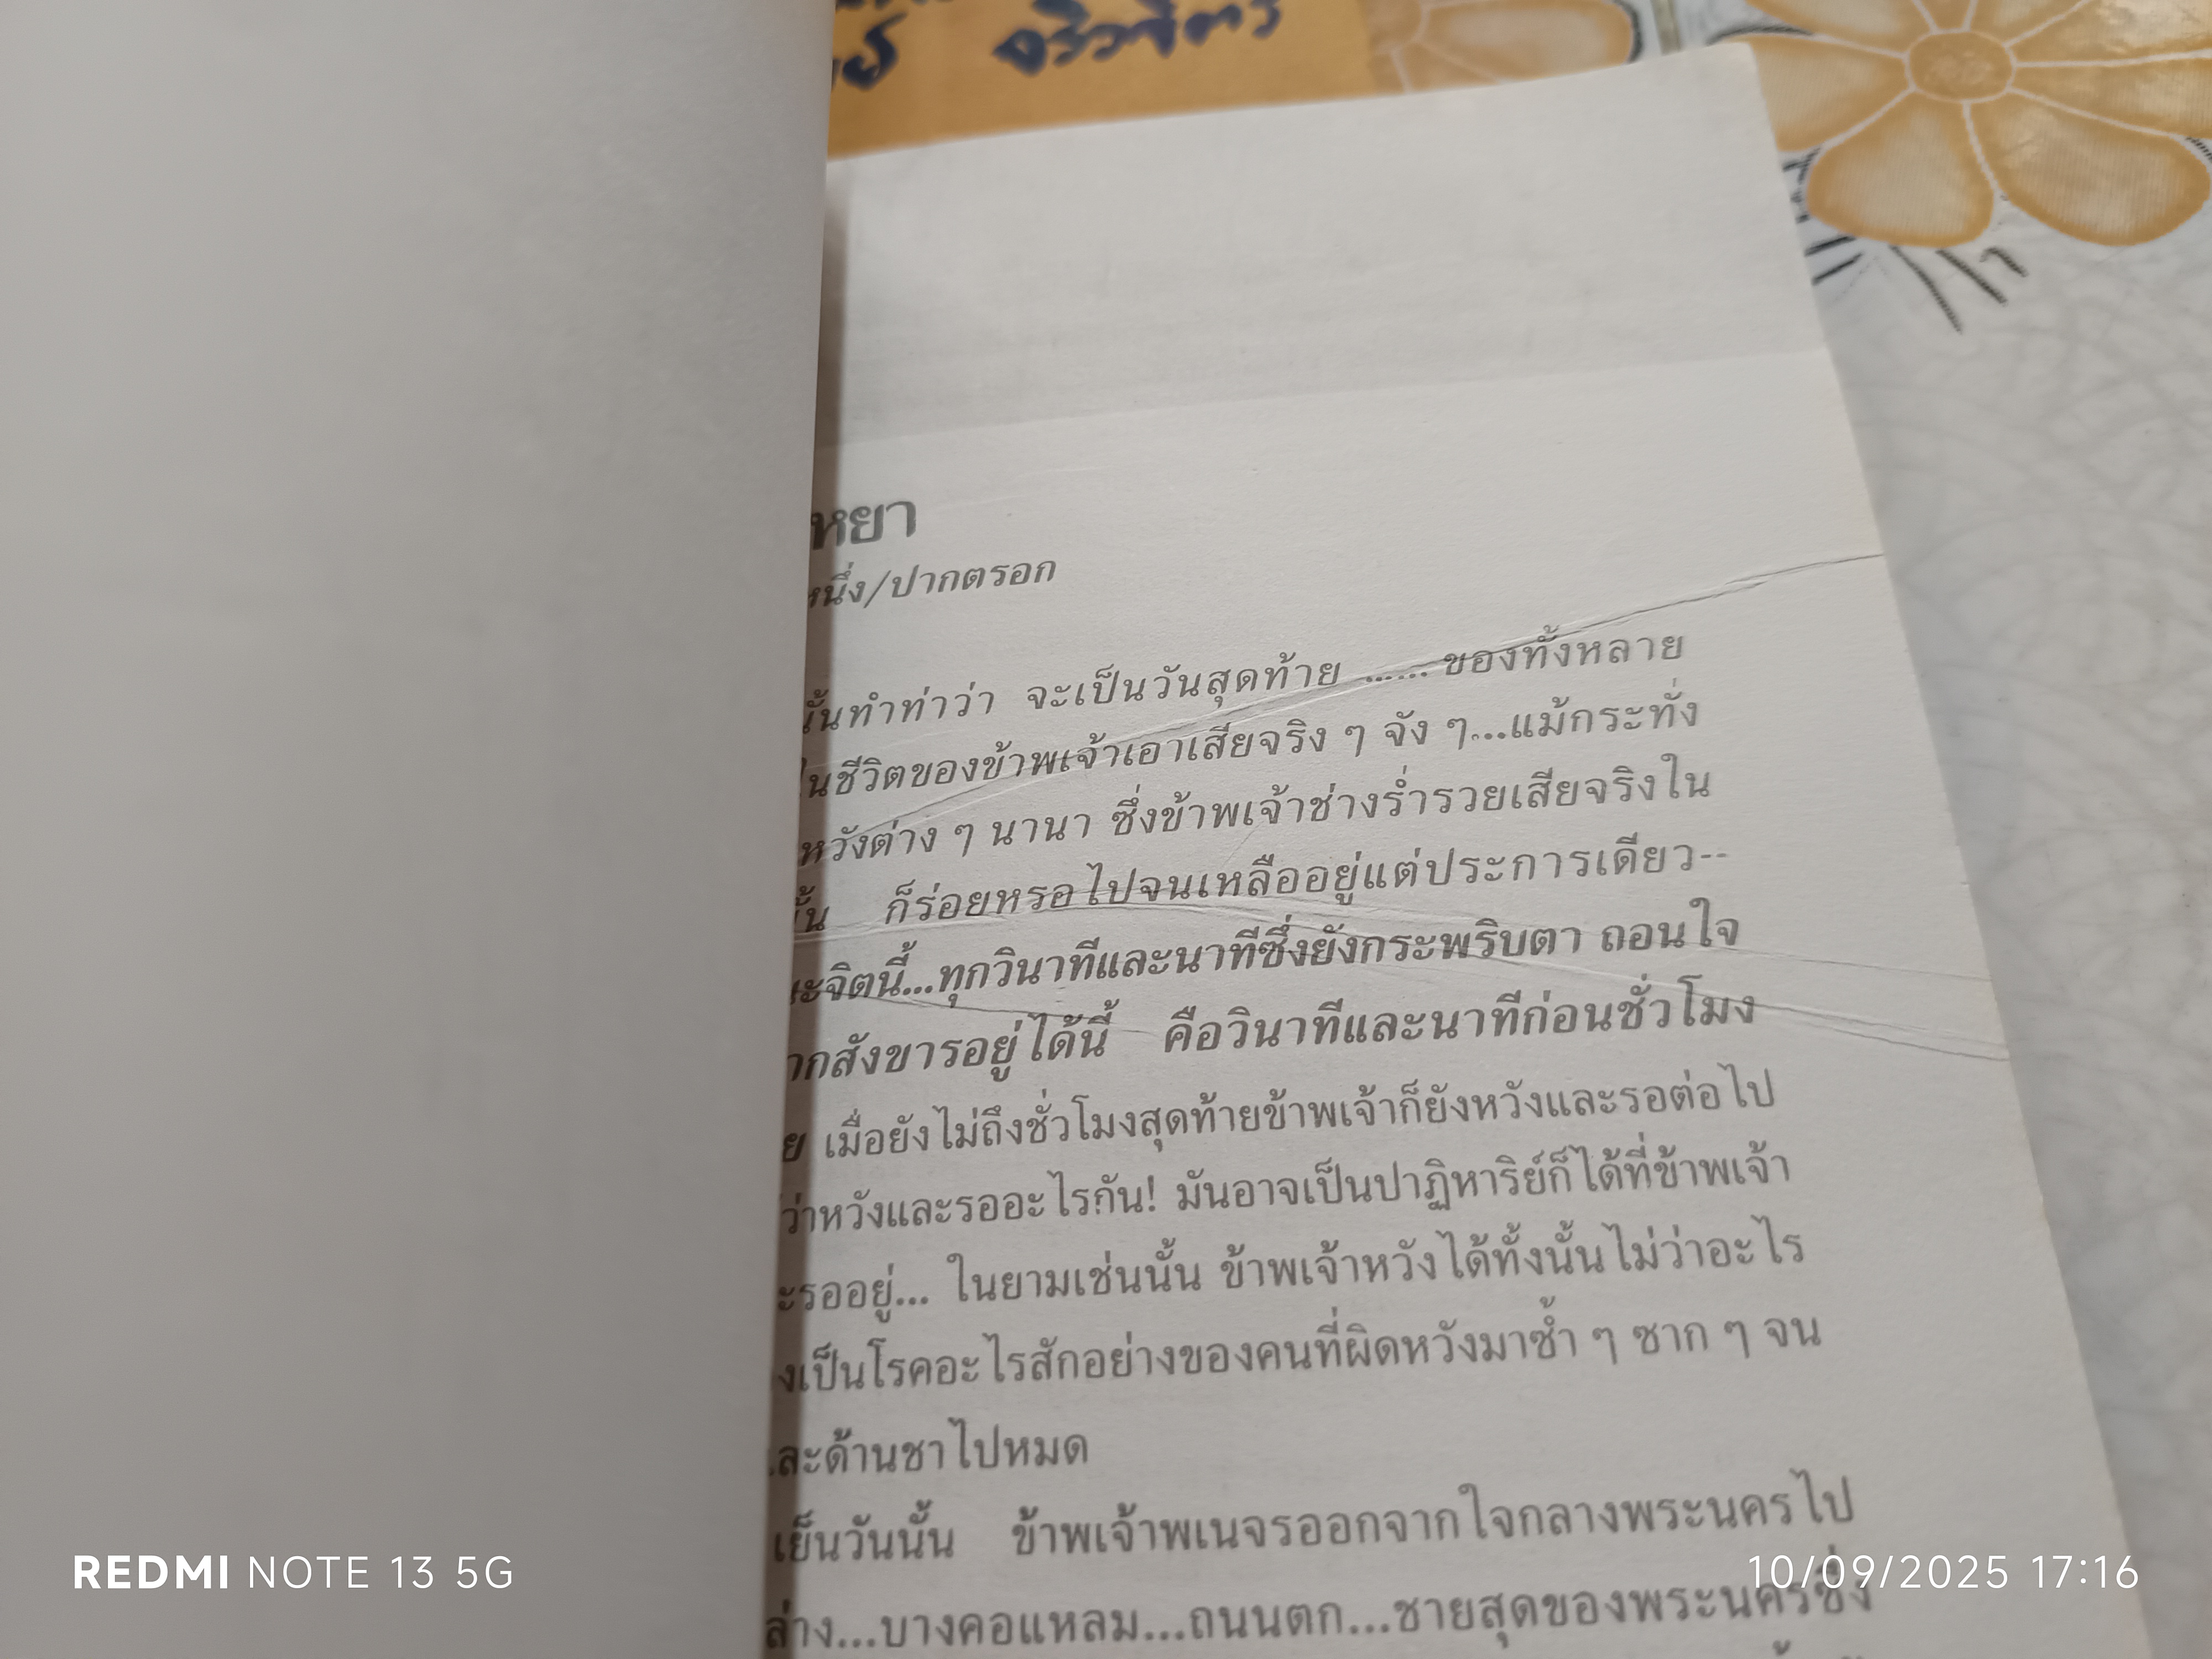 จริวจิตร
หยา
หนึ่ง/ปากตรอก
นั้นทำท่าว่า จะเป็นวันสุดท้าย ......ของทั้งหลาย
ในชีวิตของข้าพเจ้าเอาเสียจริง ๆ จัง ๆ...แม้กระทั่ง
หวังต่าง ๆ นานา ซึ่งข้าพเจ้าช่างร่ำรวยเสียจริงใน
นั้น ก็ร่อยหรอไปจนเหลืออยู่แต่ประการเดียว--
ะจิตนี้...ทุกวินาทีและนาทีซึ่งยังกระพริบตา ถอนใจ
ากสังขารอยู่ได้นี้ คือวินาทีและนาทีก่อนชั่วโมง
ย เมื่อยังไม่ถึงชั่วโมงสุดท้ายข้าพเจ้าก็ยังหวังและรอต่อไป
ว่าหวังและรออะไรกัน! มันอาจเป็นปาฏิหาริย์ก็ได้ที่ข้าพเจ้า
ะรออยู่... ในยามเช่นนั้น ข้าพเจ้าหวังได้ทั้งนั้นไม่ว่าอะไร
งเป็นโรคอะไรสักอย่างของคนที่ผิดหวังมาซ้ำ ๆ ซาก ๆ จน
ละด้านชาไปหมด
เย็นวันนั้น ข้าพเจ้าพเนจรออกจากใจกลางพระนครไป
ล่าง...บางคอแหลม...ถนนตก...ชายสุดของพระนครซึ่ง
REDMI NOTE 13 5G
10/09/2025 17:16